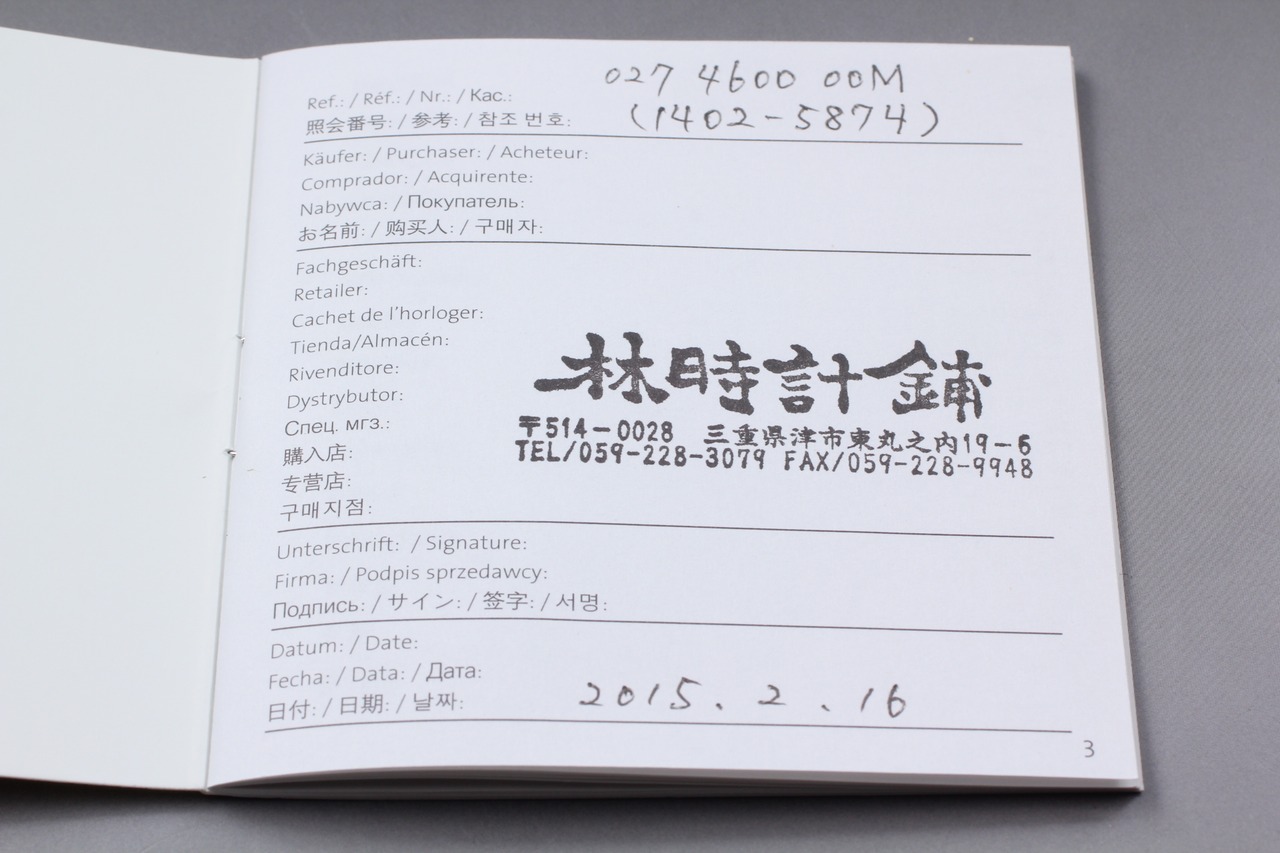 027 4600 00M
Ref.: / Réf.: / Nr.: / Kac.:
(1402-5874)
照会番号: / 参考: / 참조 번호:
Käufer: / Purchaser: / Acheteur:
Comprador: / Acquirente:
Nabywca: / Покупатель:
お名前: / 购买人: / 구매자:
Fachgeschäft:
Retailer:
Cachet de l'horloger:
Tienda/Almacén:
Rivenditore:
Dystrybutor:
Спец. мгз.:
購入店:
专营店:
구매지점:
林時計鋪
〒514-0028 三重県津市東丸之内19-6
TEL/059-228-3079 FAX/059-228-9948
Unterschrift: / Signature:
Firma: / Podpis sprzedawcy:
Подпись: / サイン: / 签字: / 서명:
Datum: / Date:
Fecha: / Data: / Дата:
日付: / 日期: / 날짜:
2015. 2. 16
3